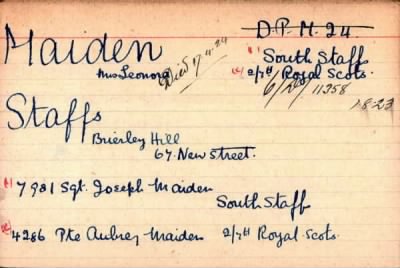 Maiden
Mrs Leonora
Died 17.4.24
D.P.M. 24
(1) South Staff
(2) 2/7th Royal Scots.
6/ 11258
1-8-23
Staffs
Brierley Hill
67. New Street.
(1) 7981 Sgt. Joseph Maiden
South Staff
(2) 4286 Pte Aubrey Maiden 2/7th Royal Scots.